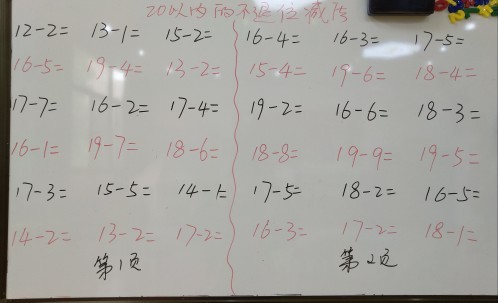 20以内的不退位减法
12-2= 13-1= 15-2= 16-4= 16-3= 17-5=
16-5= 19-4= 13-2= 15-4= 19-6= 18-4=
17-7= 16-2= 17-4= 19-2= 16-6= 18-3=
16-1= 19-7= 18-6= 18-8= 19-9= 19-5=
17-3= 15-5= 14-1= 17-5= 18-2= 16-5=
14-2= 13-2= 17-2= 16-3= 17-2= 18-1=
第1页 第2页